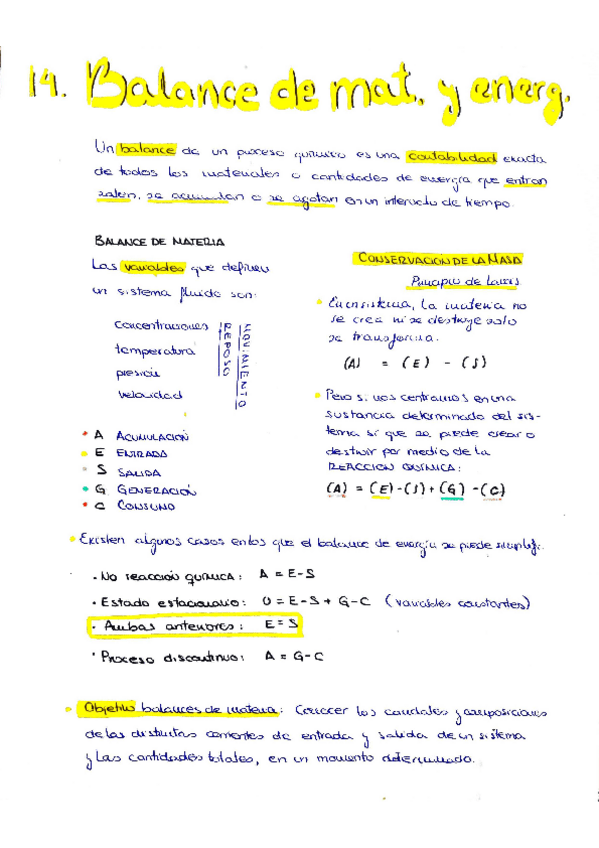 14. Balance de mat. y energ.
Un balance de un proceso químico es una contabilidad exacta
de todos los materiales o cantidades de energía que entran
salen, se acumulan o se agotan en un intervalo de tiempo.
BALANCE DE MATERIA
Las variables que definen
un sistema fluido son:
concentraciones
temperatura
presión
velocidad
REPOSO
MOVIMIENTO
• A ACUMULACIÓN
• E ENTRADA
• S SALIDA
• G GENERACIÓN
• C CONSUMO
CONSERVACIÓN DE LA MASA
Principio de
• En un sistema, la materia no
se crea ni se destruye solo
se transforma.
(A) = (E) - (S)
• Pero si nos centramos en una
sustancia determinada del sis-
tema sí que se puede crear o
destruir por medio de la
REACCIÓN QUÍMICA:
(A) = (E)-(S)+(G)-(C)
• Existen algunos casos en los que el balance de energía se puede simplif.:
· No reacción química: A = E-S
· Estado estacionario: 0 = E-S + G-C (variables constantes)
· Ambas anteriores: E = S
· Proceso discontinuo: A = G-C
• Objetivo balances de materia: Conocer los caudales y composiciones
de las distintas corrientes de entrada y salida de un sistema
y las cantidades totales, en un momento determinado.